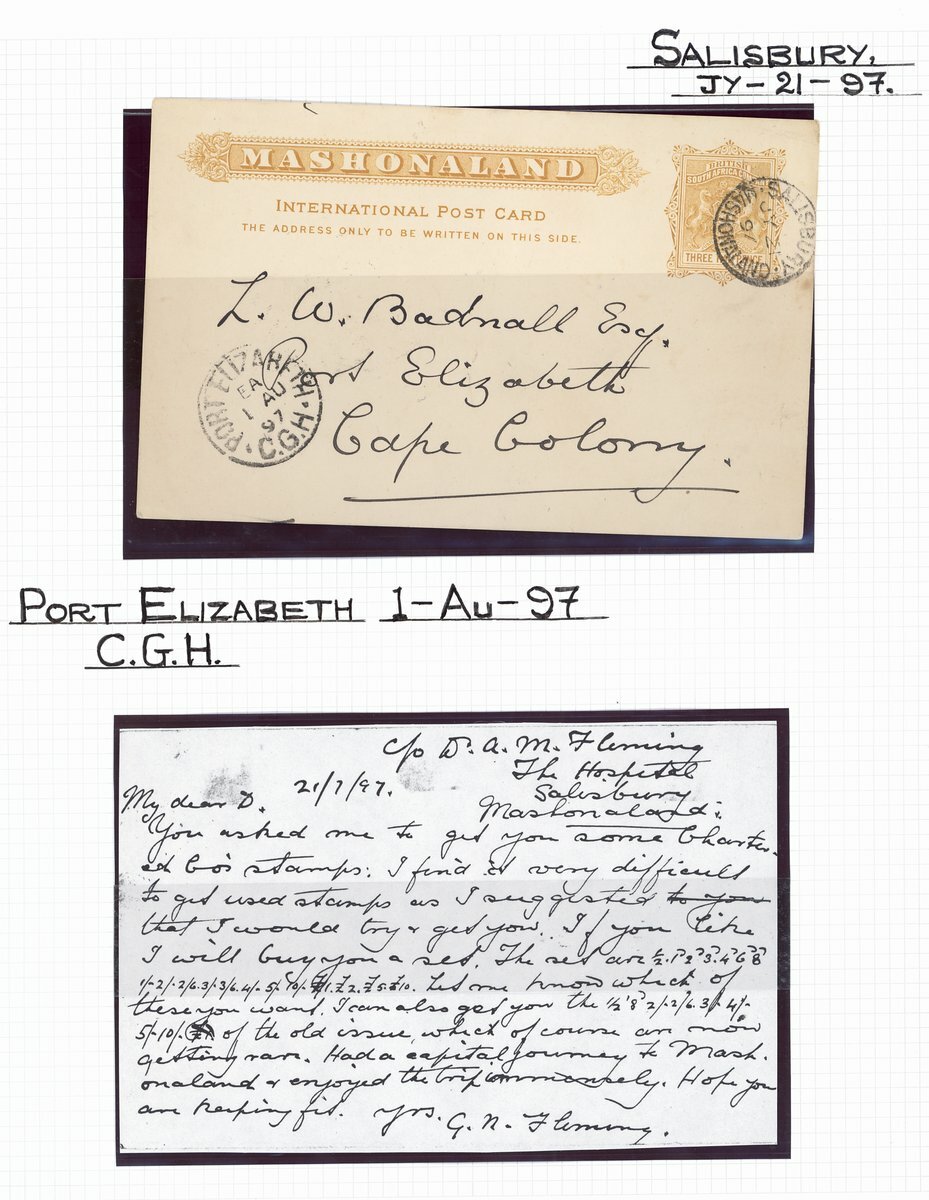 SALISBURY.
JY-21-97.
MASHONALAND
INTERNATIONAL POST CARD
THE ADDRESS ONLY TO BE WRITTEN ON THIS SIDE.
BRITISH
SOUTH AFRICA
THREE
SALISBURY · MASHONALAND ·
97
L. W. Badnall Esq.
Port Elizabeth
Cape Colony.
PORT ELIZABETH · C.G.H. ·
EA
1 AU
97
PORT ELIZABETH 1-AU-97
C.G.H.
c/o Dr. A. M. Fleming
The Hospital
Salisbury
Mashonaland.
21/7/97.
My dear D.
You asked me to get you some Charter-
ed Co's stamps. I find it very difficult
to get used stamps as I suggested to you
that I would try & get you. If you like
I will buy you a set. The set are ½. 1. 2. 3. 4. 6. 8
1/-2/-2/6.3/-3/6.4/-5/-10/- £1. £2. £5. £10. Let me know which of
these you want. I can also get you the ½ 8 2/-2/6.3/-4/-
5/-10/- of the old issue, which of course are now
getting rare. Had a capital journey to Mash-
onaland & enjoyed the trip immensely. Hope you
are keeping fit. Yrs. G. N. Fleming.